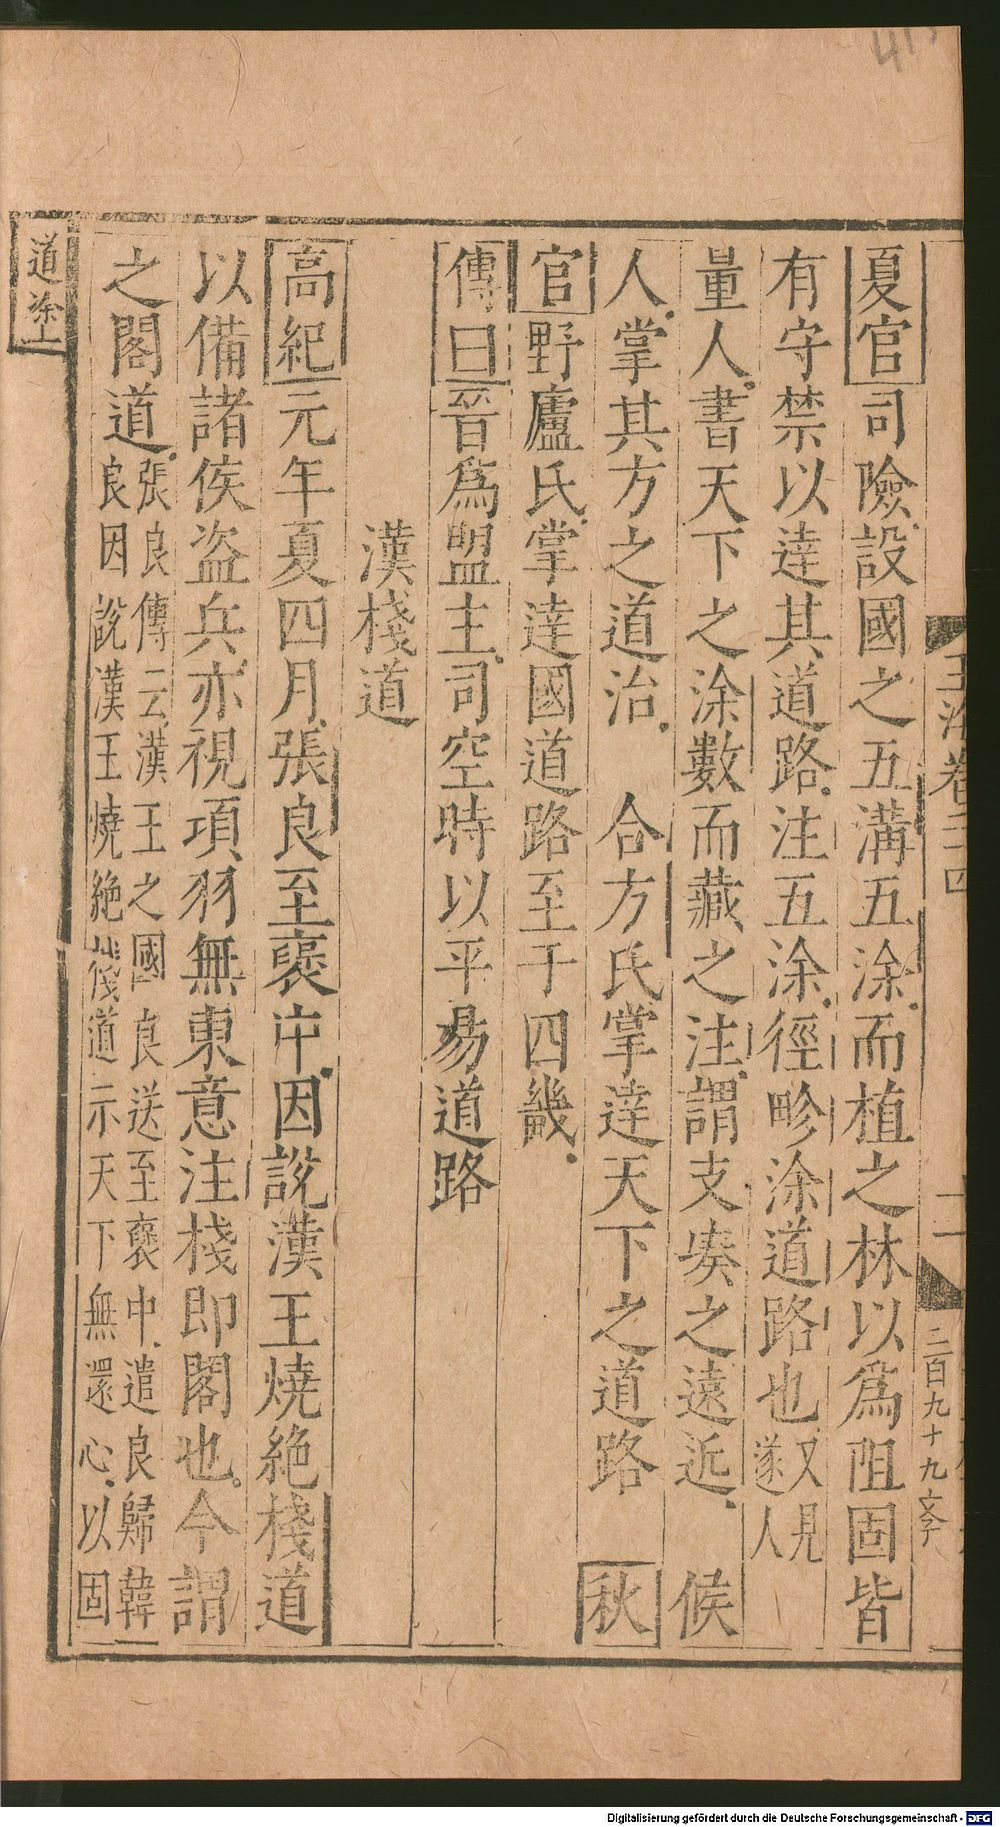 夏官司險設國之五溝五涂而植之林以爲阻固皆
有守禁以達其道路注五涂徑畛涂道路也又見遂人
量人書天下之涂數而藏之注謂支湊之遠近　候
人掌其方之道治　合方氏掌達天下之道路　秋
官野廬氏掌達國道路至于四畿
傳曰晉爲盟主司空時以平易道路
漢棧道
高紀元年夏四月張良至褒中因說漢王燒絕棧道
以備諸侯盜兵亦視項羽無東意注棧即閣也今謂
之閣道張良傳云漢王之國良送至褒中遣良歸韓
良因說漢王燒絕棧道示天下無還心以固
道涂上
玉海卷二十四
二百九十九文字
Digitalisierung gefördert durch die Deutsche Forschungsgemeinschaft - DFG